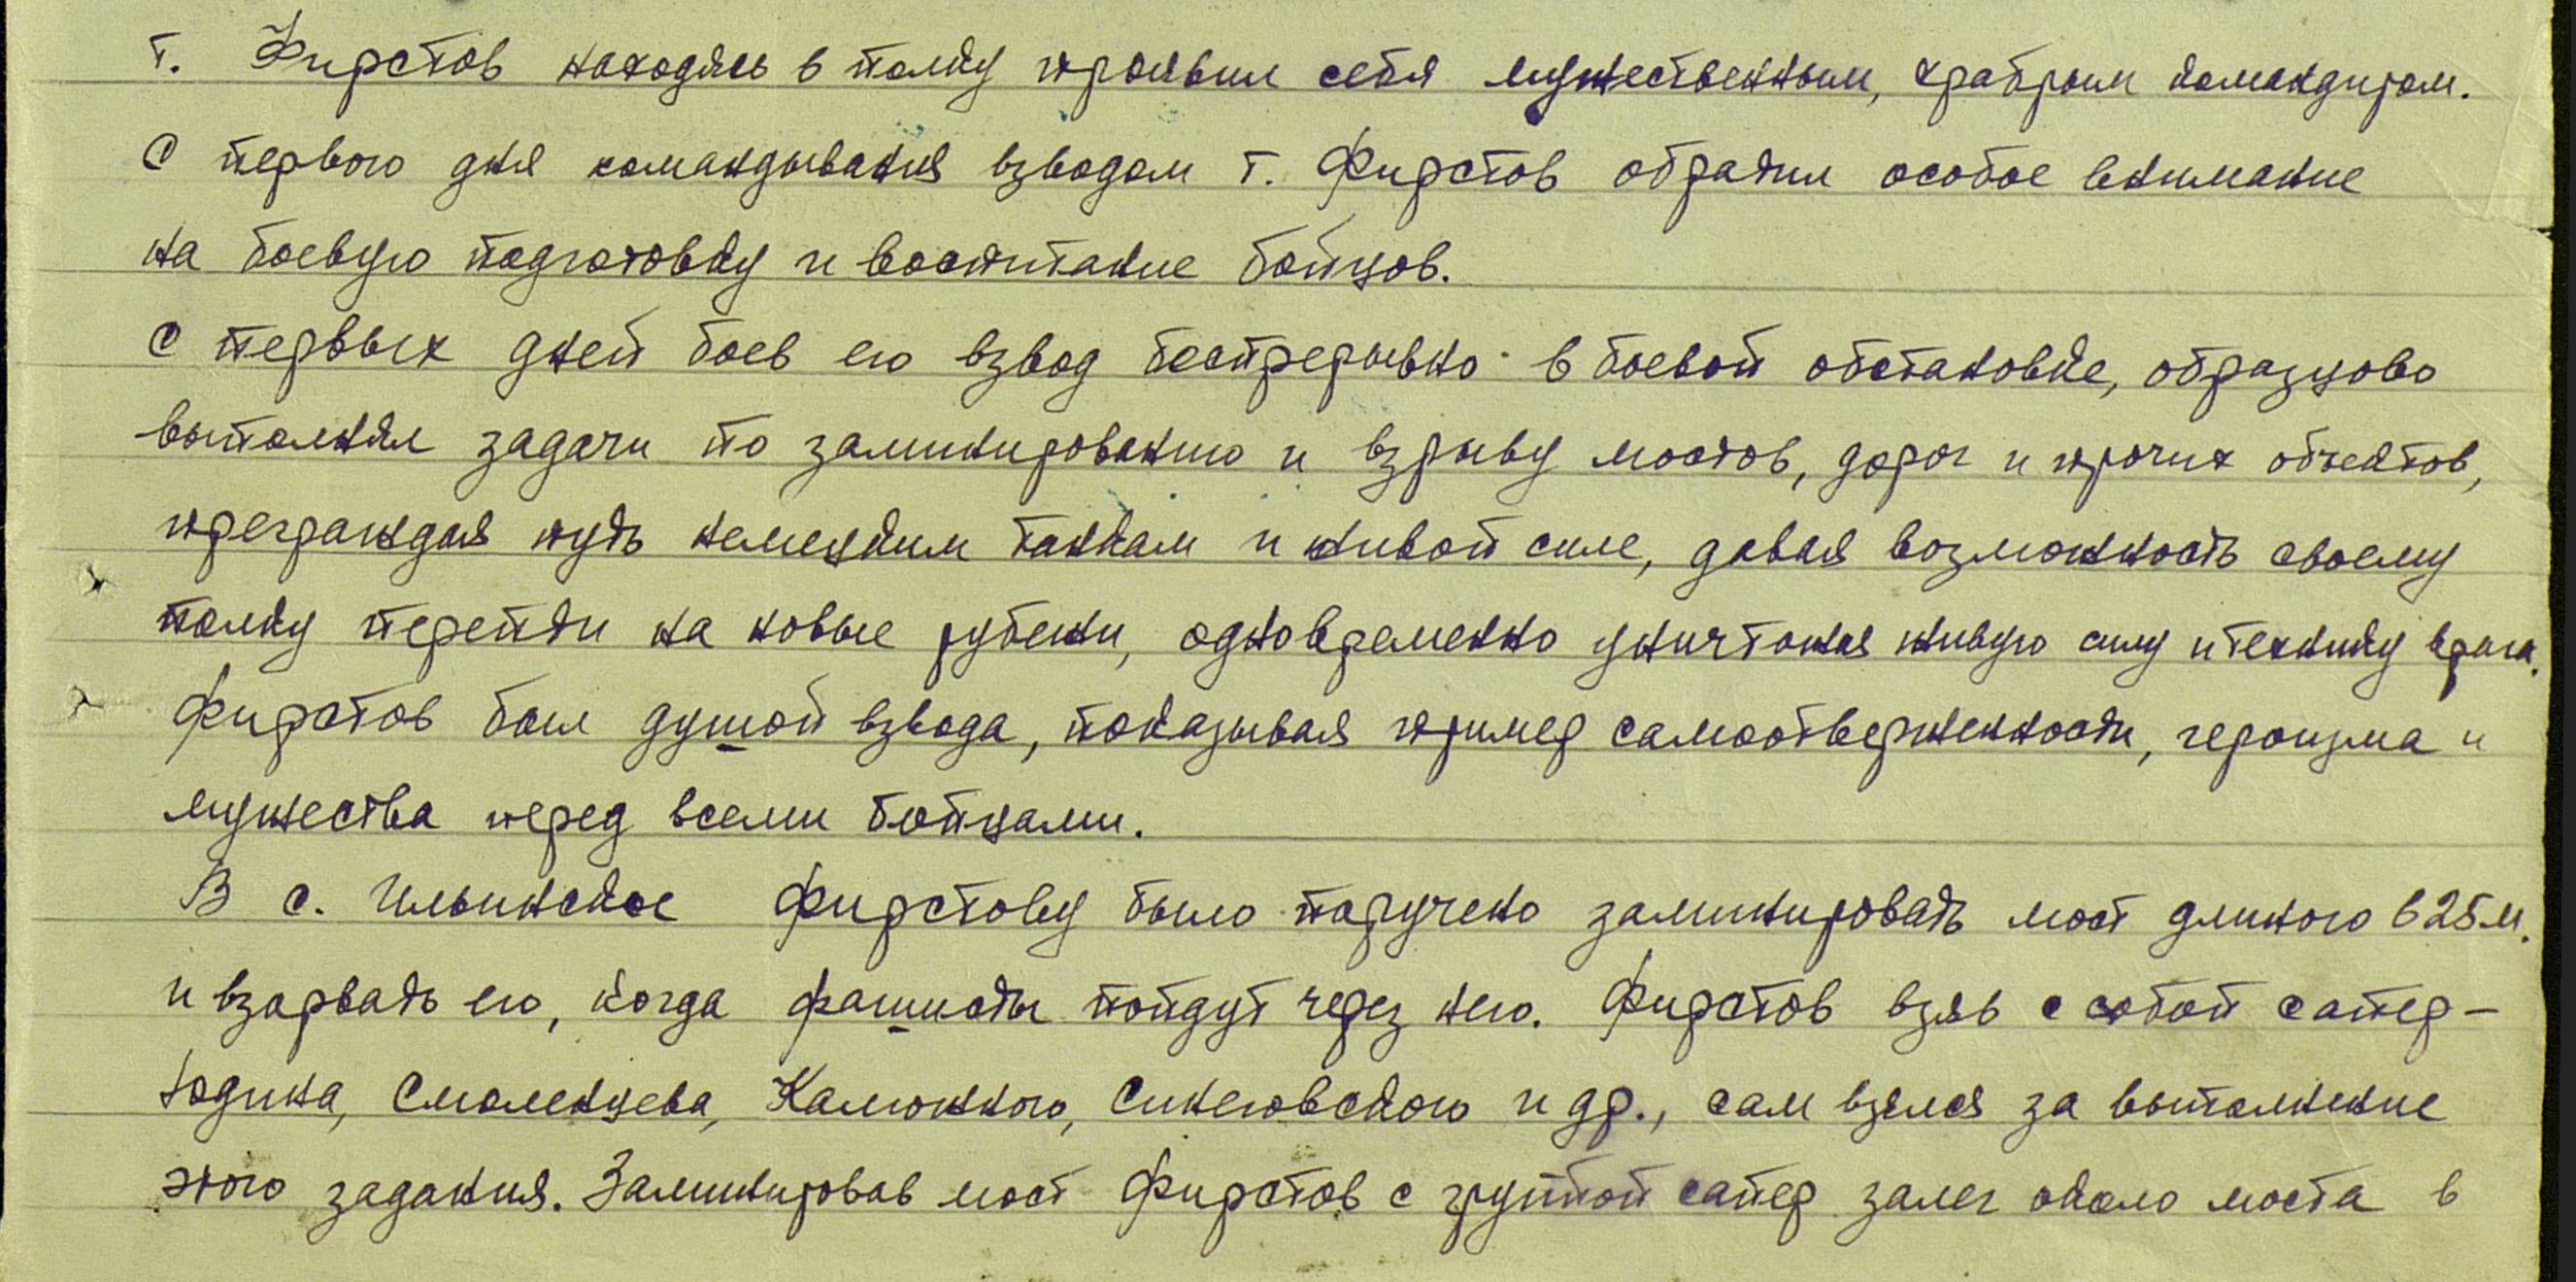 т. Фирстов находясь в полку проявил себя мужественным, храбрым командиром.
С первого дня командывания взводом т. Фирстов обратил особое внимание
на боевую подготовку и воспитание бойцов.
С первых дней боев его взвод беспрерывно в боевой обстановке, образцово
выполнял задачи по заминированию и взрыву мостов, дорог и прочих объектов,
преграждая путь немецким танкам и живой силе, давая возможность своему
полку перейти на новые рубежи, одновременно уничтожая живую силу и технику врага.
Фирстов был душой взвода, показывая пример самоотверженности, героизма и
мужества перед всеми бойцами.
В с. Ильинское Фирстову было поручено заминировать мост длиною в 25 м.
и взорвать его, когда фашисты пойдут через него. Фирстов взяв с собой сапер-
Юдина, Смоленцева, Калюжного, Синеговского и др., сам взялся за выполнение
этого задания. Заминировав мост Фирстов с группой сапер залег около моста в